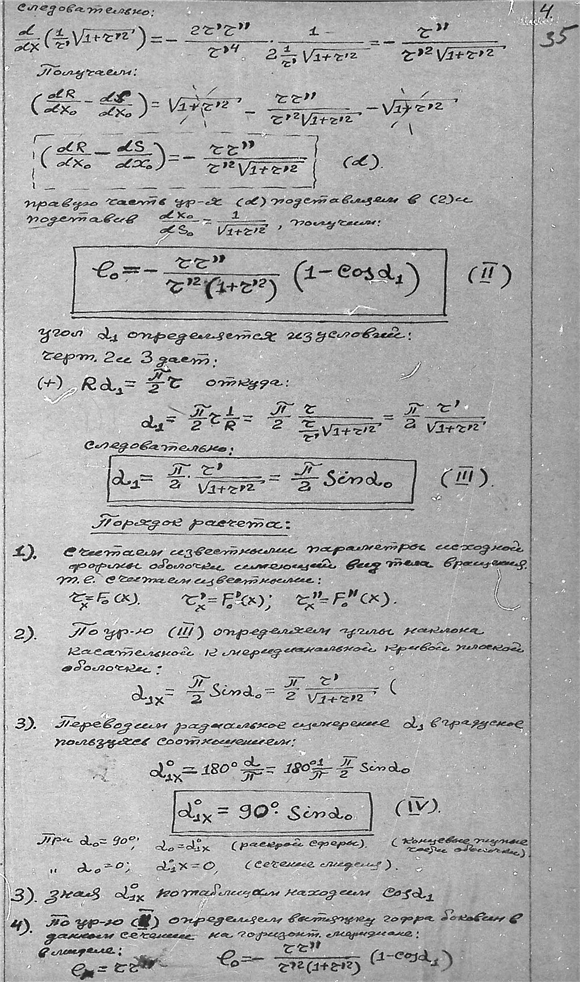 4
35
следовательно:
d/dx (1/τ' √1+τ'²) = - 2τ'τ''/τ'⁴ · 1/(2 1/τ' √1+τ'²) = - τ''/(τ'²√1+τ'²)
Получаем:
(dR/dx₀ - dS/dx₀) = √1+τ'² - ττ''/(τ'²√1+τ'²) - √1+τ'²
(dR/dx₀ - dS/dx₀) = - ττ''/(τ'²√1+τ'²) (d)
правую часть ур-я (d) подставляем в (2) и
подставив dx₀/dS₀ = 1/√1+τ'², получим:
ℓ₀ = - ττ''/(τ'²(1+τ'²)) (1-cosα₁) (II)
угол α₁ определяется из условий:
черт. 2 и 3 даст:
(+) Rα₁ = π/2 τ откуда:
α₁ = π/2 τ 1/R = π/2 τ/(τ/τ' √1+τ'²) = π/2 τ'/√1+τ'²
следовательно:
α₁ = π/2 · τ'/√1+τ'² = π/2 Sinα₀ (III).
Порядок расчета:
1). Считаем известными параметры исходной
формы оболочки имеющий вид тела вращения.
т.е. считаем известными:
τₓ = F₀(x). τₓ' = F₀'(x); τₓ'' = F₀''(x).
2). По ур-ю (III) определяем углы наклона
касательной к меридианальной кривой плоской
оболочки:
α₁ₓ = π/2 Sinα₀ = π/2 τ'/√1+τ'² (
3). Переводим радиальное измерение α₁ в градусное
пользуясь соотношением:
α°₁ₓ = 180° α/π = 180° 1/π π/2 Sinα₀
α°₁ₓ = 90°· Sinα₀ (IV).
При α₀ = 90°; α₀ = α°₁ₓ (раскрой сферы). (концевые части оболочки).
" α₀ = 0; α°₁ₓ = 0, (сечение миделя).
3). зная α°₁ₓ по таблицам находим cosα₁
4). По ур-ю (II) определяем вытяжку гофра боковин в
данном сечении на горизонт. меридиане:
в миделе: ℓ₀ = - ττ''/(τ'²(1+τ'²)) (1-cosα₁)
= ττ''